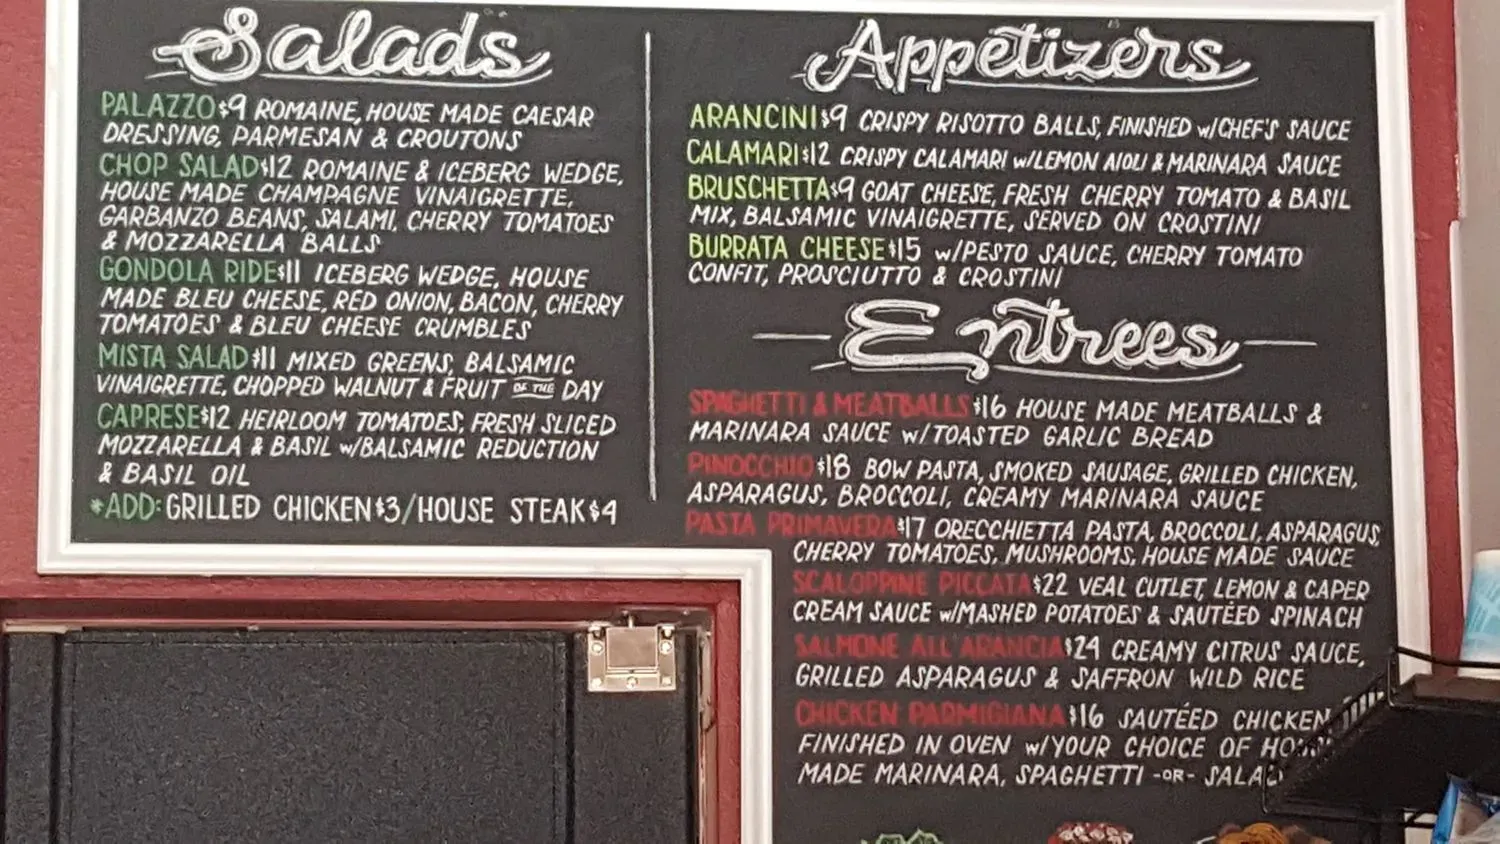 Salads
PALAZZO $9 ROMAINE, HOUSE MADE CAESAR
DRESSING, PARMESAN & CROUTONS
CHOP SALAD $12 ROMAINE & ICEBERG WEDGE,
HOUSE MADE CHAMPAGNE VINAIGRETTE,
GARBANZO BEANS, SALAMI, CHERRY TOMATOES
& MOZZARELLA BALLS
GONDOLA RIDE $11 ICEBERG WEDGE, HOUSE
MADE BLEU CHEESE, RED ONION, BACON, CHERRY
TOMATOES & BLEU CHEESE CRUMBLES
MISTA SALAD $11 MIXED GREENS, BALSAMIC
VINAIGRETTE, CHOPPED WALNUT & FRUIT OF THE DAY
CAPRESE $12 HEIRLOOM TOMATOES, FRESH SLICED
MOZZARELLA & BASIL w/BALSAMIC REDUCTION
& BASIL OIL
*ADD: GRILLED CHICKEN $3/HOUSE STEAK $4
Appetizers
ARANCINI $9 CRISPY RISOTTO BALLS, FINISHED w/CHEF'S SAUCE
CALAMARI $12 CRISPY CALAMARI w/LEMON AIOLI & MARINARA SAUCE
BRUSCHETTA $9 GOAT CHEESE, FRESH CHERRY TOMATO & BASIL
MIX, BALSAMIC VINAIGRETTE, SERVED ON CROSTINI
BURRATA CHEESE $15 w/PESTO SAUCE, CHERRY TOMATO
CONFIT, PROSCIUTTO & CROSTINI
Entrees
SPAGHETTI & MEATBALLS $16 HOUSE MADE MEATBALLS &
MARINARA SAUCE w/TOASTED GARLIC BREAD
PINOCCHIO $18 BOW PASTA, SMOKED SAUSAGE, GRILLED CHICKEN,
ASPARAGUS, BROCCOLI, CREAMY MARINARA SAUCE
PASTA PRIMAVERA $17 ORECCHIETTA PASTA, BROCCOLI, ASPARAGUS,
CHERRY TOMATOES, MUSHROOMS, HOUSE MADE SAUCE
SCALOPPINE PICCATA $22 VEAL CUTLET, LEMON & CAPER
CREAM SAUCE w/MASHED POTATOES & SAUTÉED SPINACH
SALMONE ALL'ARANCIA $24 CREAMY CITRUS SAUCE,
GRILLED ASPARAGUS & SAFFRON WILD RICE
CHICKEN PARMIGIANA $16 SAUTÉED CHICKEN
FINISHED IN OVEN w/YOUR CHOICE OF
MADE MARINARA, SPAGHETTI -OR-